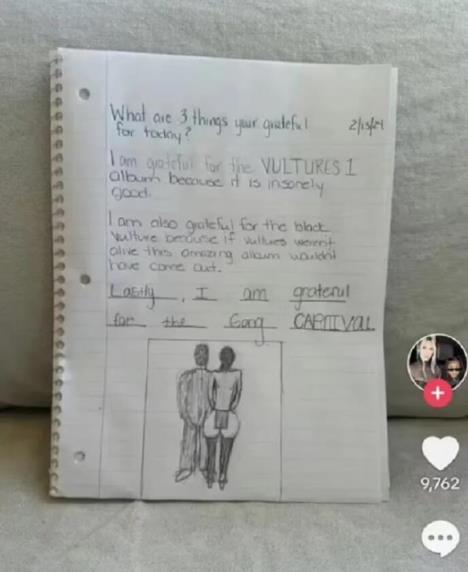 What are 3 things your grateful
for today?
2/13/24
I am grateful for the VULTURES 1
album because it is insanely
good.
I am also grateful for the black
vulture because if vultures weren't
alive this amazing album wouldn't
have come out.
Lastly, I am grateful
for the Song CARNIVAL
9,762